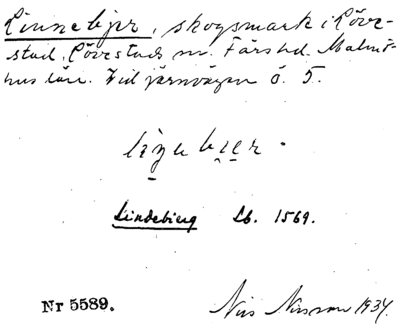 Linnebjer, skogsmark i Lövestad, Lövestads sn. Färs hd. Malmöhus län. Vid järnvägen ö. 5.
Lindebierg Lb. 1569.
Nr 5589.
Nils Nilsson 1934.